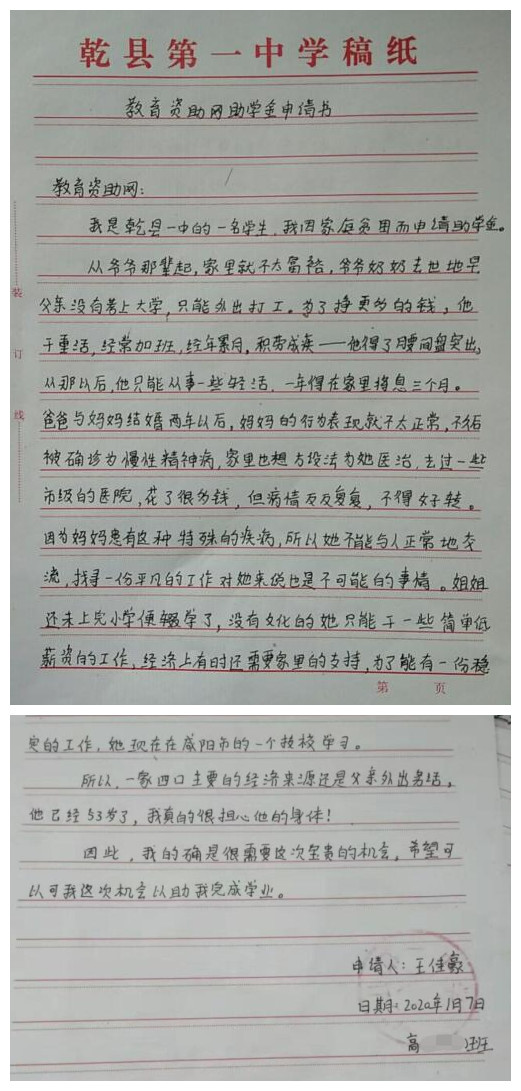 乾县第一中学稿纸
教育资助网助学金申请书
教育资助网:
我是乾县一中的一名学生,我因家庭贫困而申请助学金。
从爷爷那辈起,家里就不太富裕,爷爷奶奶去世地早
父亲没有考上大学,只能外出打工。为了挣更多的钱,他
干重活,经常加班,经年累月,积劳成疾——他得了腰间盘突出,
从那以后,他只能从事一些轻活,一年得在家里将息三个月。
爸爸与妈妈结婚两年以后,妈妈的行为表现就不太正常,不久后
被确诊为慢性精神病,家里也想方设法为她医治,去过一些
市级的医院,花了很多钱,但病情反反复复,不得好转。
因为妈妈患有这种特殊的疾病,所以她不能与人正常地交
流,找寻一份平凡的工作对她来说也是不可能的事情。姐姐
还未上完小学便辍学了,没有文化的她只能干一些简单低
薪资的工作,经济上有时还需要家里的支持,为了能有一份稳
第 页
定的工作,她现在在咸阳市的一个技校学习。
所以,一家四口主要的经济来源还是父亲外出务活,
他已经53岁了,我真的很担心他的身体!
因此,我的确是很需要这次宝贵的机会,希望可
以可我这次机会以助我完成学业。
申请人:王佳豪
日期:2020年1月7日
高 班
装
订
线